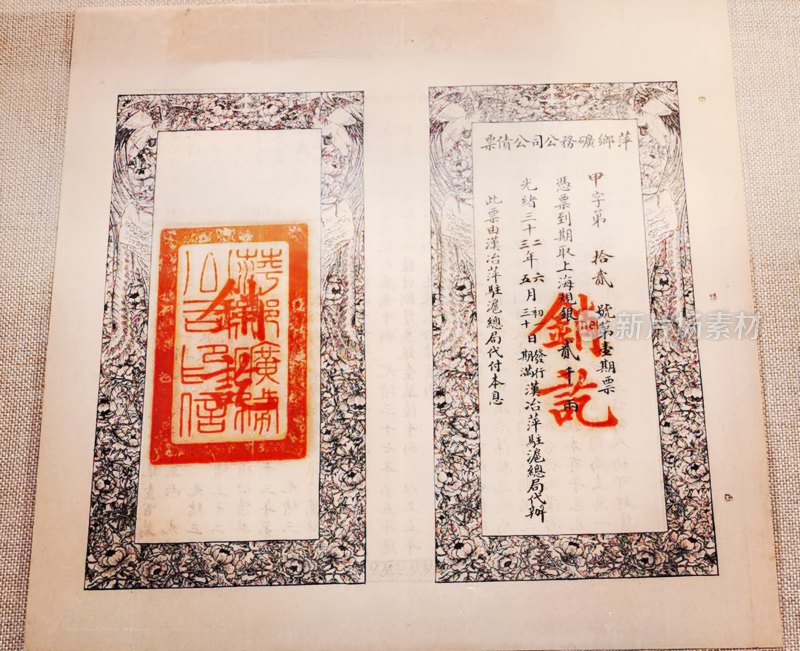 萍鄉礦務公司公債票
甲字第拾貳號第壹期票
憑票到期取上海規銀貳千兩
光緒三十二年六月初一日發行
三五三十期滿
漢冶萍駐滬總局代辦
此票由漢冶萍駐滬總局代付本息
銷訖
萍鄉礦務公司印信
新片場素材